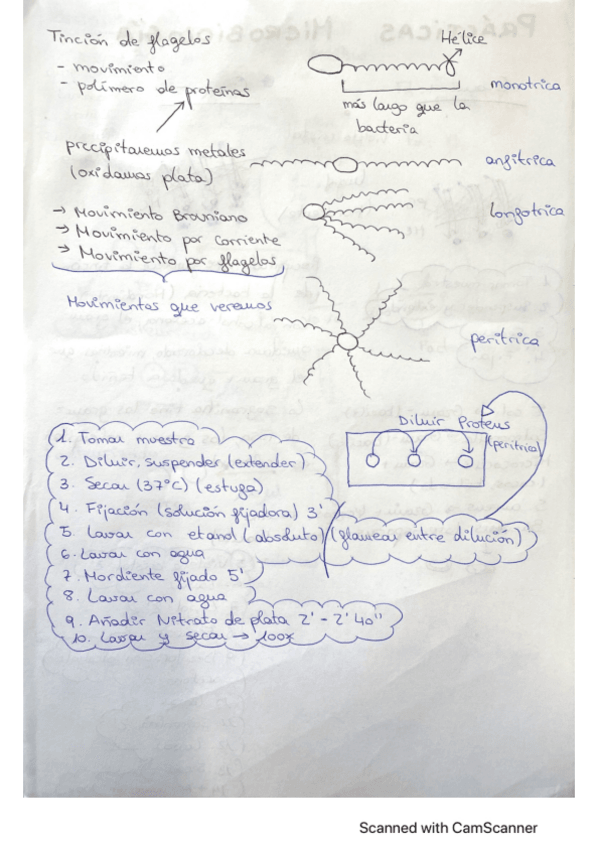 Tinción de flagelos
- movimiento
- polímero de proteínas
precipitaremos metales
(oxidamos plata)
→ Movimiento Browniano
→ Movimiento por corriente
→ Movimiento por flagelos
Movimientos que veremos
Hélice
monotrica
más largo que la
bacteria
anfitrica
lofotrica
peritrica
1. Tomar muestra
2. Diluir, suspender (extender)
3. Secar (37°C) (estufa)
4. Fijación (solución fijadora) 3'
5. Lavar con etanol (absoluto) (flamear entre dilución)
6. Lavar con agua
7. Mordiente fijado 5'
8. Lavar con agua
9. Añadir Nitrato de plata 2' - 2'40"
10. Lavar y secar → 100x
Diluir Proteus
(peritrico)
Scanned with CamScanner